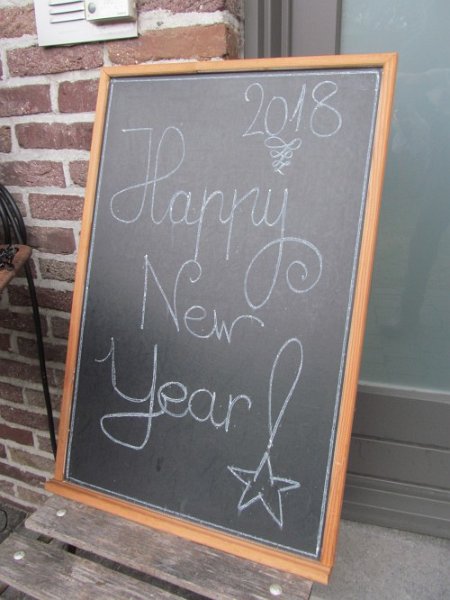 2018
Happy
New
Year!